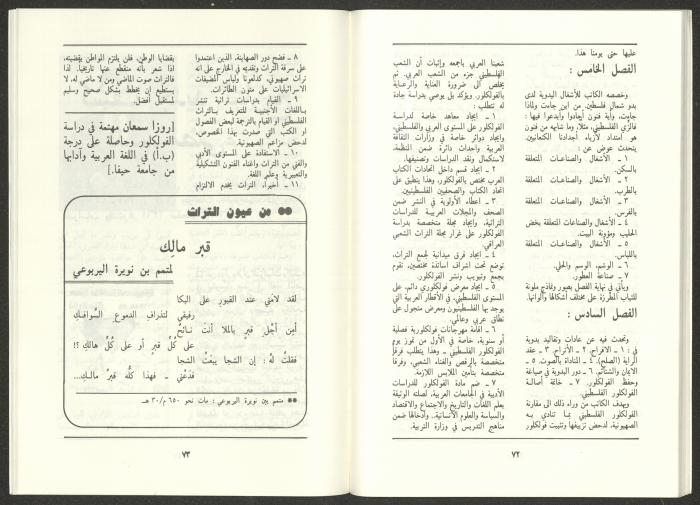 عليها حتى يومنا هذا.
الفصل الخامس :
وخصصه الكاتب للأشغال البدوية لدى
بدو شمالي فلسطين من اين جاءت ولماذا
جاءت، وأية فنون أجادوا وأبدعوا فيها :
فالزي الفلسطيني، مثلا، وما شابهه من فنون
هو امتداد لأزياء أجدادنا الكنعانيين.
يتحدث عوض عن :
١ ـ الأشغال والصناعات المتعلقة
بالسكن.
٢ ـ الأشغال والصناعات المتعلقة
بالطرب.
٣ ـ الأشغال والصناعات المتعلقة
بالفرس.
٤ ـ الأشغال والصناعات المتعلقة بخض
الحليب ومؤونة البيت.
٥ ـ الأشغال والصناعات المتعلقة
باللباس.
٦ ـ الوشم، الوسم والحلي.
٧ ـ صناعة العطور.
ويأتي في نهاية الفصل بصور ونماذج ملونة
للثياب المطرزة على مختلف أشكالها وألوانها.
الفصل السادس :
وتحدث فيه عن عادات وتقاليد بدوية
في : ١ ـ الافراح. ٢ ـ الأتراح. ٣ ـ عقد
الراية (الصلح). ٤ ـ المناداة بالصوت. ٥ ـ
الايمان والشتائم. ٦ ـ دور البدوية في صياغة
وحفظ الفولكلور. ٧ ـ خاتمة أصالة
الفولكلور الفلسطيني.
ويهدف الكاتب من وراء ذلك الى مقارنة
الفولكلور الفلسطيني بما تنادي به
الصهيونية، لدحض تزييفها وتثبيت فولكلور
شعبنا العربي بأجمعه وإثبات أن الشعب
الفلسطيني جزء من الشعب العربي. ثم
يخلص الى ضرورة العناية والرعاية
بالفولكلور. ويؤكد بل يوصي بدراسة جادة
له تتطلب :
١ ـ ايجاد معاهد خاصة لدراسة
الفولكلور على المستوى العربي والفلسطيني،
وايجاد دوائر خاصة في وزارات الثقافة
العربية واحداث دائرة ضمن المنظمة،
لاستكمال ونقد الدراسات وتصنيفها.
٢ ـ ايجاد قسم داخل اتحادات الكتاب
العرب مختص بالفولكلور، وهذا ينطبق على
اتحاد الكتاب والصحفيين الفلسطينيين.
٣ ـ اعطاء الأولوية في النشر ضمن
الصحف والمجلات العربية للدراسات
التراثية، وايجاد مجلة متخصصة بدراسة
الفولكلور على غرار مجلة التراث الشعبي
العراقي.
٤ ـ ايجاد فرق ميدانية لجمع التراث،
توضع تحت اشراف اساتذة مختصين، تقوم
بجمع وتبويب ونشر الفولكلور.
٥ ـ ايجاد معرض فولكلوري دائم، على
المستوى الفلسطيني، في الأقطار العربية التي
يوجد بها الفلسطينيون ومعرض متجول على
نطاق عربي وعالمي.
٦ ـ اقامة مهرجانات فولكلورية فصلية
أو سنوية، خاصة في الأول من تموز يوم
الفولكلور الفلسطيني ـ وهذا يتطلب فرقا
متخصصة بالرقص والغناء الشعبي، وفرقا
متخصصة بتأمين الملابس اللازمة.
٧ ـ ضم مادة الفولكلور للدراسات
الأدبية في الجامعات العربية، لصلته الوثيقة
بعلم اللغات والتاريخ والاجتماع والاقتصاد
والسياسة والعلوم الانسانية.. وادخالها ضمن
مناهج التدريس في وزارة التربية.
٧٢
٨ ـ فضح دور الصهاينة، الذين اعتمدوا
على سرقة التراث وتقديمه في الخارج على أنه
تراث صهيوني، كدلعونا ولباس المضيفات
الاسرائيليات على متون الطائرات.
٩ ـ القيام بدراسات تراثية تنشر
باللغات الأجنبية للتعريف بالتراث
الفلسطيني او القيام بالترجمة لبعض الفصول
او الكتب التي صدرت بهذا الخصوص،
لدحض مزاعم الصهيونية.
١٠ ـ الاستفادة على المستوى الأدبي
والفني من التراث واغناء الفنون التشكيلية
والتعبيرية وعلم اللغة.
١١ ـ أخيرا، التراث يخدم الالتزام
بقضايا الوطن، فلن يلتزم المواطن بقضيته،
اذا شعر بأنه منقطع عنها تاريخيا. لذا
فالتراث صوت الماضي ومن لا ماضي له، لا
يستطيع ان يخطط بشكل صحيح وسليم
لمستقبل أفضل.
[روزا سمعان مهتمة في دراسة
الفولكلور وحاصلة على درجة
(ب.أ) في اللغة العربية وآدابها
من جامعة حيفا.]
●● من عيون التراث
قبر مالِك
لمتمم بن نويرة اليربوعي
لقد لامَني عند القبورِ على البكا
رفيقي لتذرافِ الدموعِ السَّوافكِ
أمِن أجْلِ قبرٍ بالملا أنتَ نائحٌ
على كُلِّ قبرٍ أو على كُلِّ هالكِ ؟!
فقلتُ لهُ : إن الشجا يبعَثُ الشجا
فدَعْني ـ فهذا كلُّه قبرُ مالـكِ...
●● متمم بين نويرة اليربوعي : مات نحو ٦٥٠م/٣٠هـ
٧٣